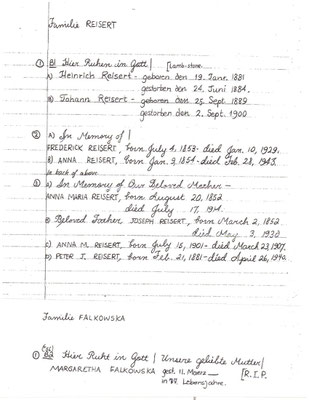 Familie REISERT
① B) Hier Ruhen in Gott | [lamb-stone.
A) Heinrich Reisert - geboren den 19. Janr. 1881
gestorben den 24. Juni 1884.
B) Johann Reisert - geboren den 25. Sept. 1889
gestorben den 2. Sept. 1900
② A) In Memory of |
FREDERICK REISERT, born July 4, 1853- died Jan. 10, 1929.
B) ANNA REISERT, born Jan. 9, 1854- died Feb. 28, 1943.
in back of above
③ a) In Memory of Our Beloved Mother -
ANNA MARIA REISERT, born August 20, 1852
died July 17, 1914.
B) Beloved Father JOSEPH REISERT, born March 2, 1852
died May 3, 1930
c) ANNA M. REISERT, born July 15, 1901- died March 23, 1907.
D) PETER J. REISERT, born Feb. 21, 1881- died April 26, 1940.
Familie FALKOWSKA
① Hier Ruht in Gott | Unsere geliebte Mutter |
MARGARETHA FALKOWSKA gest. 11. Maerz
in 87. Lebensjahre. [R.I.P.